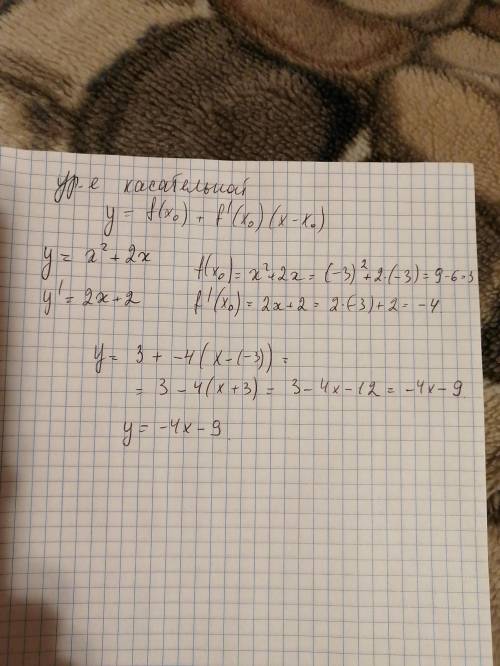 ур-е касательной
y = f(x₀) + f'(x₀)(x-x₀)
y = x² + 2x
f(x₀) = x²+2x = (-3)²+2·(-3) = 9-6=3
y' = 2x+2
f'(x₀) = 2x+2 = 2·(-3)+2 = -4
y = 3 + -4(x-(-3)) =
= 3-4(x+3) = 3-4x-12 = -4x-9
y = -4x-9.